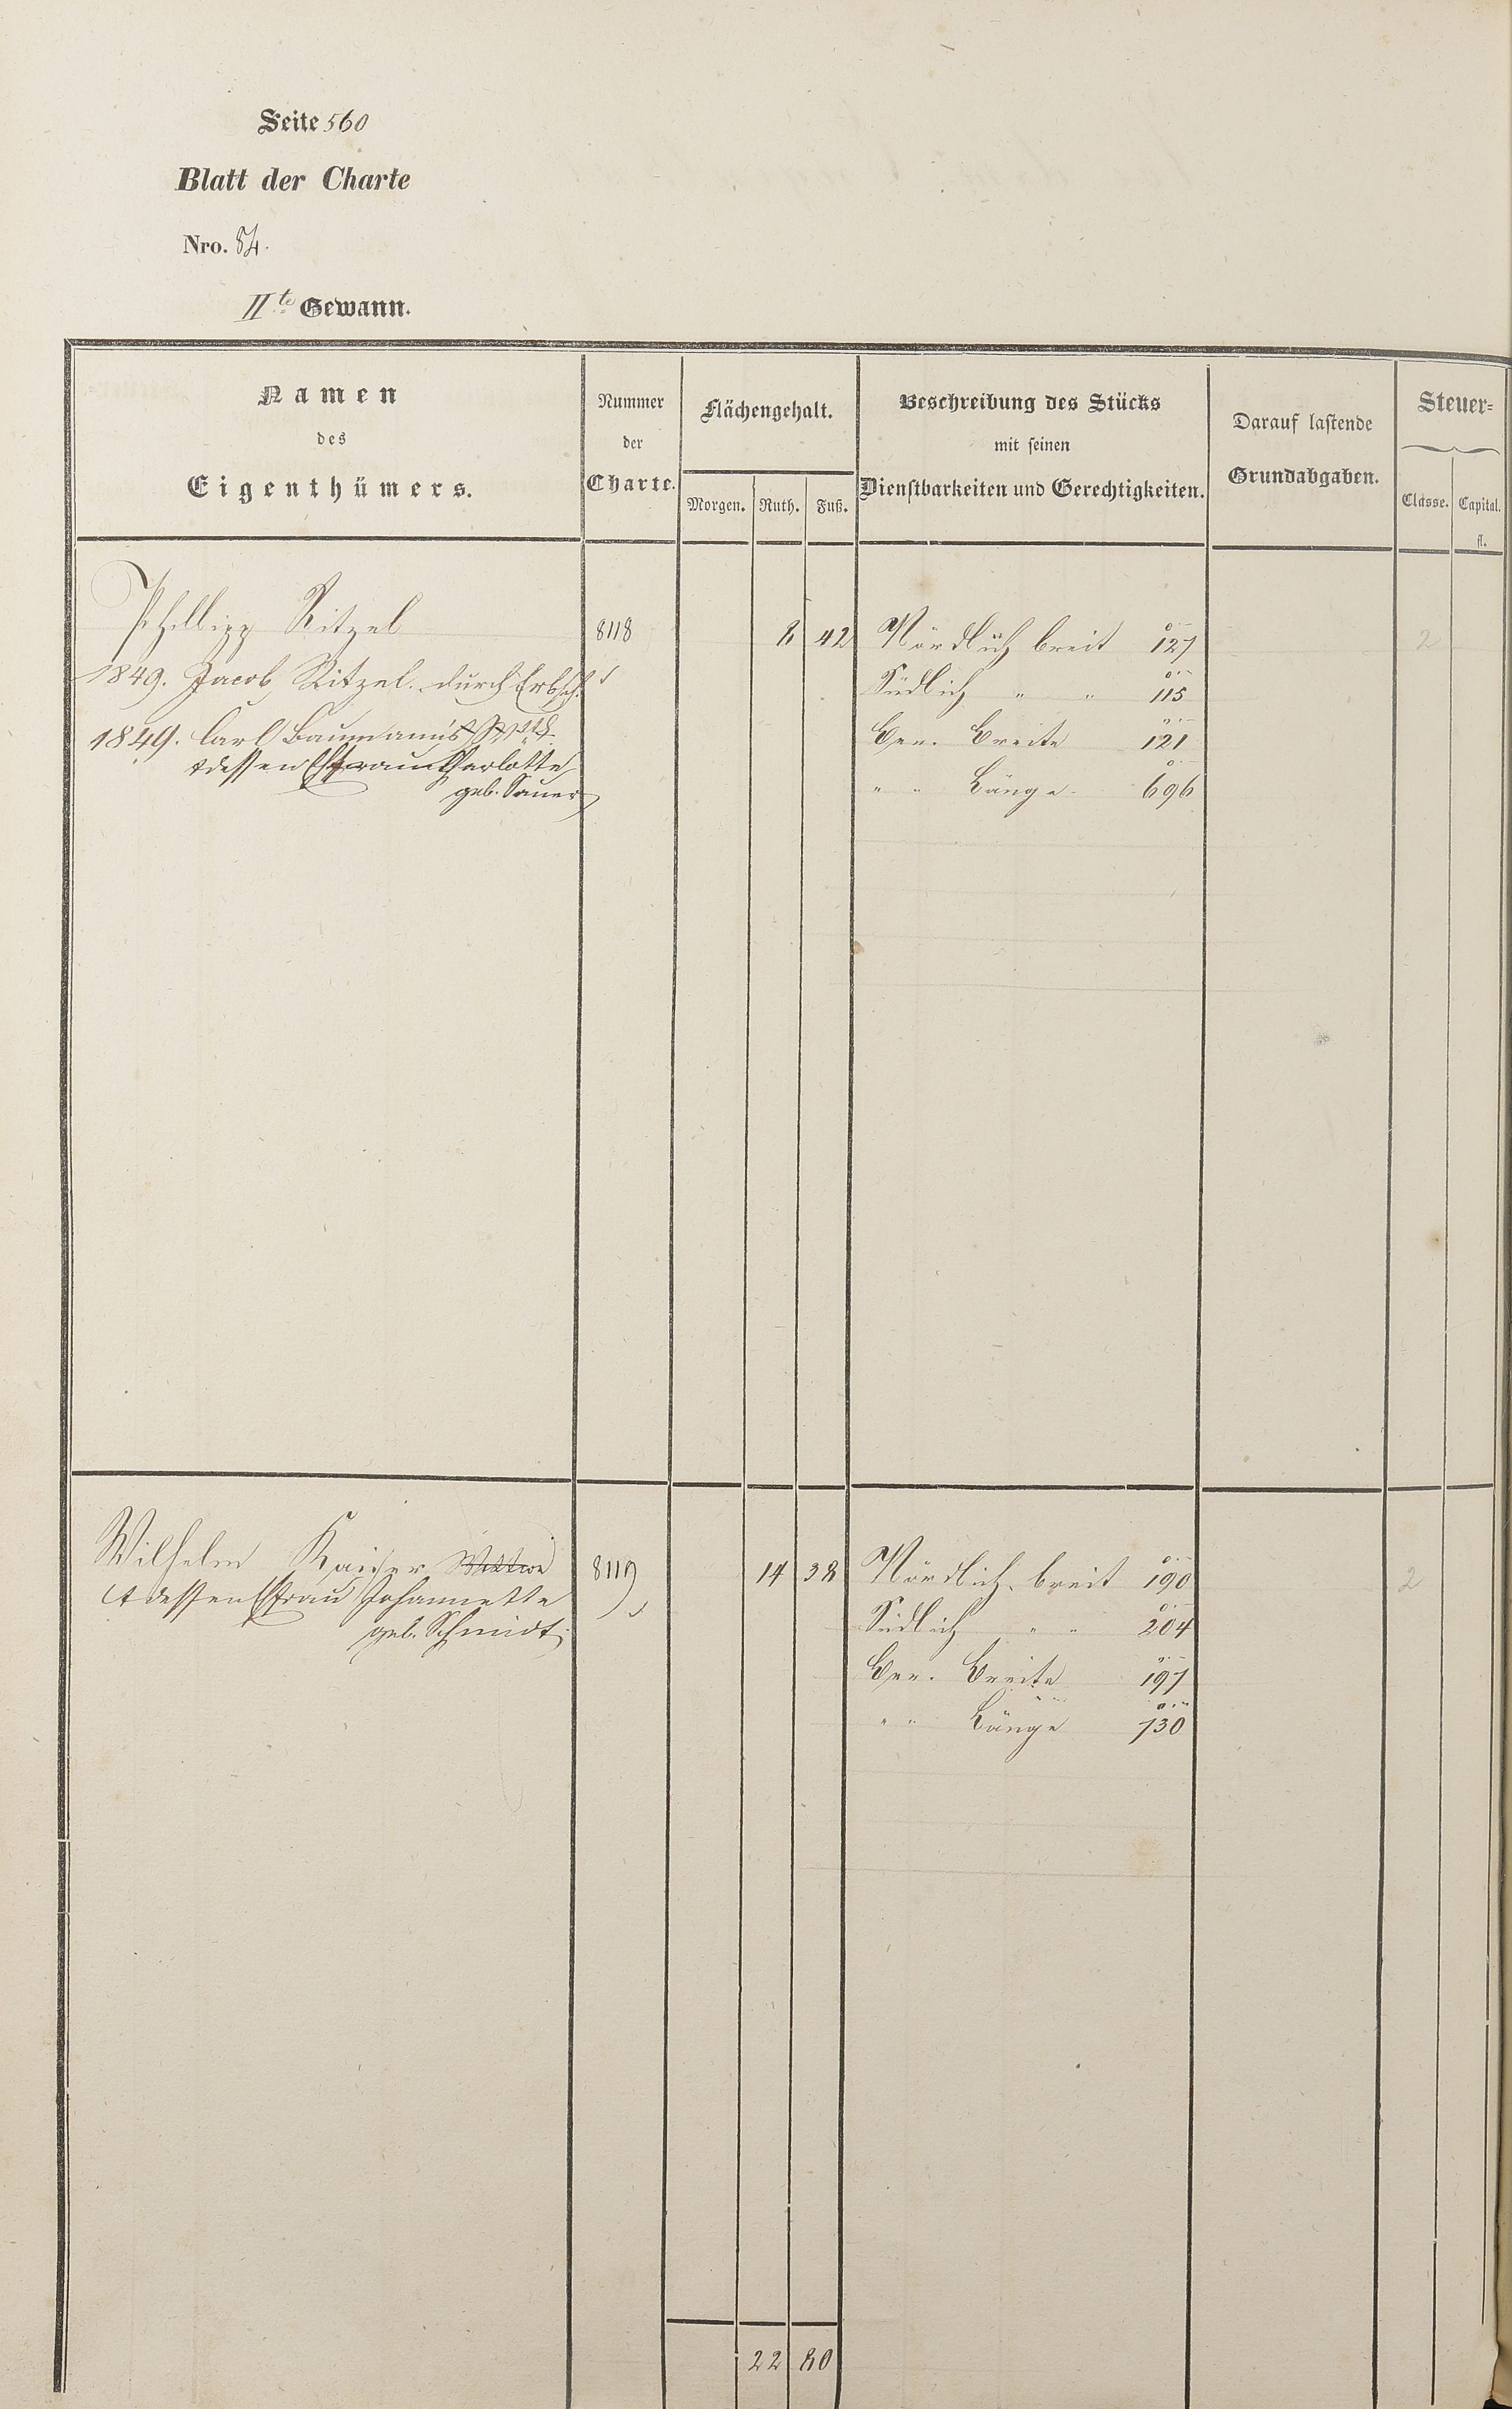 Seite 560
Blatt der Charte
Nro. 54.
IIte Gewann.
Namen
des
Eigenthümers.
Nummer
der
Charte.
Flächengehalt.
Morgen. Ruth. Fuß.
Beschreibung des Stücks
mit seinen
Dienstbarkeiten und Gerechtigkeiten.
Darauf lastende
Grundabgaben.
Steuer=
Classe. Capital.
fl.
Philipp Ritzel 8118 8 42 Nördlich breit 127 2
1849. Jacob Ritzel durch Erbsch. Südlich " " 115
1849. Carl Baumann's Ww Ger. Breite 121
& dessen Ehfrau Charlotte
geb. Sauer " " Länge 696
Wilhelm Kaiser Wittwe 8119 14 38 Nördlich breit 190 2
& dessen Ehfrau Johannette Südlich " " 204
geb. Schmidt
Ger. Breite 197
" " Länge 730
22 80